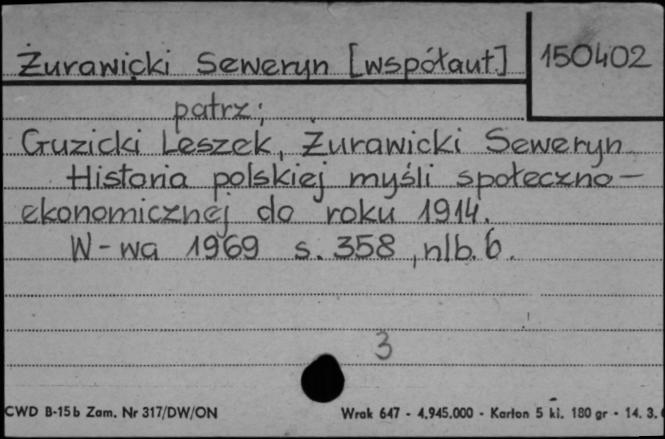 Żurawicki Seweryn [współaut.] 150402
patrz;
Guzicki Leszek, Żurawicki Seweryn
Historia polskiej myśli społeczno-
ekonomicznej do roku 1914.
W-wa 1969 s. 358, nlb. 6.
3
CWD B-15b Zam. Nr 317/DW/ON Wrak 647 - 4.945.000 - Karton 5 kl. 180 gr - 14. 3.